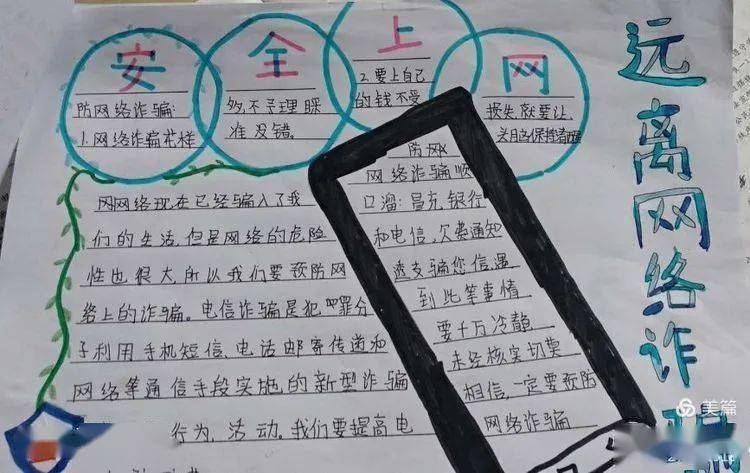 安全上网
远离网络诈
防网络诈骗:
1.网络诈骗花样
多,不予理睬
准没错。
2.要上自己
的钱不受
损失,就要让
头目良保持清醒
防网
网络诈骗顺
口溜:冒充,银行
和电信,欠费通知
透支骗您信,遇
到此等事情
要千万冷静
未经核实切莫
相信,一定要预防
网络诈骗
网网络现在已经骗入了我
们的生活,但是网络的危险
性也很大,所以我们要预防网
络上的诈骗。电信诈骗是犯罪分
子利用手机短信、电话邮寄传递和
网络等通信手段实施的新型诈骗
行为,活动。我们要提高电
美篇